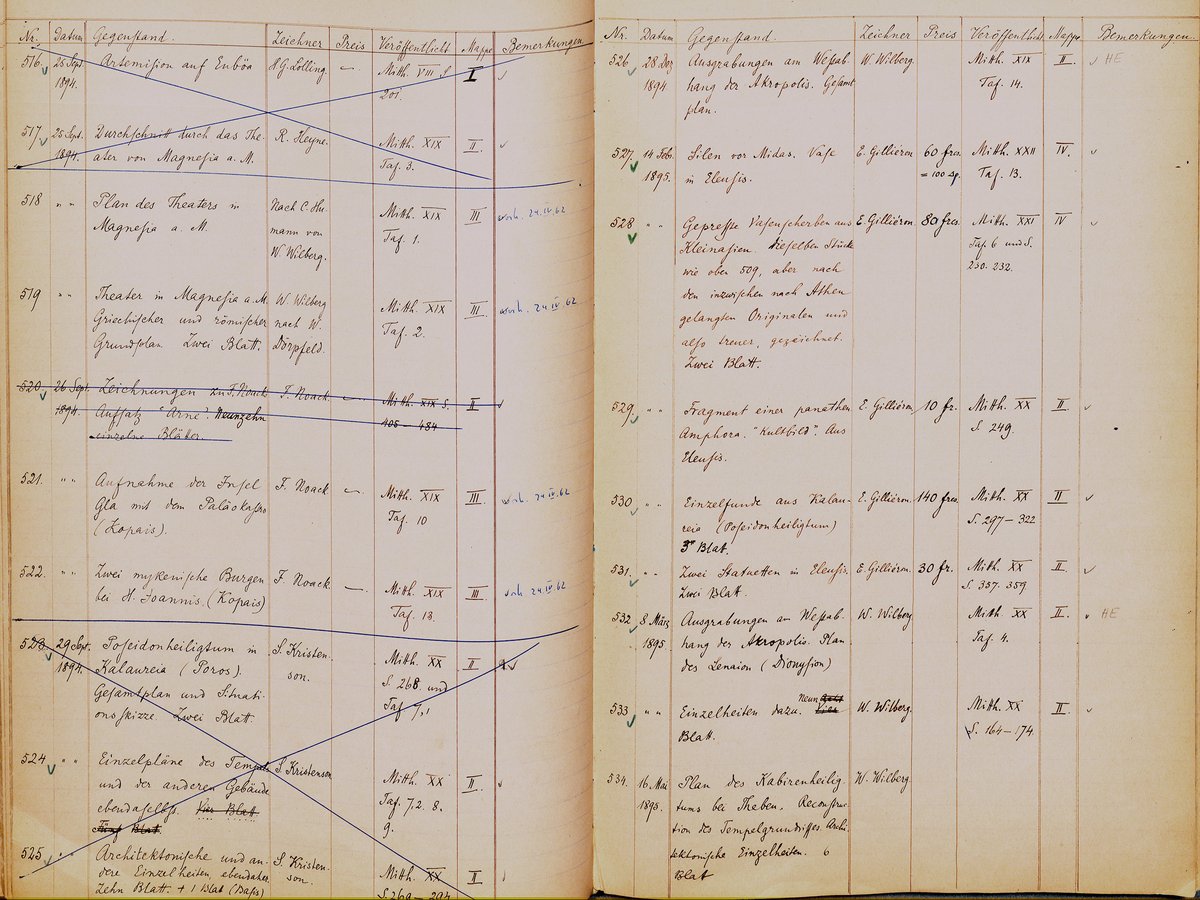 Nr. Datum Gegenstand. Zeichner Preis Veröffentlicht Mappe Bemerkungen
516 25 Sept. Artemision auf Euböa H.G. Lolling. — Mitth. VIII S. I
1894. 201.
517 25 Sept. Durchschnitt durch das The- R. Heyne. Mitth. XIX II.
1894. ater von Magnesia a. M. Taf. 3.
518 " " Plan des Theaters in Nach C. Hu- Mitth. XIX III vorh. 24.IV.62
Magnesia a. M. mann von Taf. 1.
W. Wilberg.
519 " " Theater in Magnesia a. M. W. Wilberg Mitth. XIX III. vorh. 24.IV.62
Griechischer und römischer nach W. Taf. 2.
Grundplan. Zwei Blatt. Dörpfeld.
520 26 Sept. Zeichnungen zu F. Noack F. Noack — Mitth. XIX S. II
1894. Aufsatz "Arne" Neunzehn 405 — 484
einzelne Blätter.
521. " " Aufnahme der Insel F. Noack — Mitth. XIX III vorh. 24.IV.62
Gla mit dem Paläokastro Taf. 10
(Kopais).
522. " " Zwei mykenische Burgen F. Noack — Mitth. XIX III. vorh 24.IV.62
bei H. Joannis. (Kopais) Taf. 13.
523. 29 Sept. Poseidonheiligtum in S. Kristen- Mitth. XX II
1894. Kalaureia (Poros). son. S. 268. und
Gesamtplan und Situati- Taf 7,1
onsskizze. Zwei Blatt.
524 " " Einzelpläne des Tempels S. Kristenson Mitth. XX II.
und der anderen Gebäude Taf. 7.2. 8.
ebendaselbst. Vier Blatt 9.
Fünf Blat.
525 " " Architektonische und an- S. Kristen- Mitth. XX II
dere Einzelheiten, ebendaher. son. S. 269 — 294
Zehn Blatt. + 1 Blat (Basis)
Nr. Datum Gegenstand. Zeichner Preis Veröffentlicht Mappe Bemerkungen.
526 28 Dez Ausgrabungen am Westab- W. Wilberg. Mitth. XIX II. HE
1894. hang der Akropolis. Gesamt Taf. 14.
plan.
527. 14 Febr. Silen vor Midas. Vase E. Gilliéron 60 frcs. Mitth. XXII IV.
1895. in Eleusis. = 100 Taf. 13.
528 " " Gepresste Vasenscherben aus E. Gilliéron. 80 frcs. Mitth. XXI IV
Kleinasien. Dieselben Stücke Taf. 6 und S.
wie oben 509, aber nach 230. 232.
den inzwischen nach Athen
gelangten Originalen und
also treuer, gezeichnet.
Zwei Blatt.
529. " " Fragment einer panathen. E. Gilliéron. 10 fr. Mitth. XX II
Amphora. "Kultbild". Aus S. 249.
Eleusis.
530 " " Einzelfunde aus Kalau- E. Gilliéron. 140 frcs. Mitth. XX II
reia (Poseidonheiligtum) S. 297 — 322
3 Blat.
531. " " Zwei Statuetten in Eleusis. E. Gilliéron. 30 fr. Mitth. XX II.
Zwei Blatt. S. 357. 359.
532 8 März Ausgrabungen am Westab- W. Wilberg. Mitth. XX II. HE
1895. hang der Akropolis. Plan Taf. 4.
des Lenaion (Dionysion)
533 " " Einzelheiten dazu. Neun Acht Vier W. Wilberg. Mitth. XX II.
Blatt. S. 164 — 174.
534. 16 Mai Plan des Kabirenheilig- W. Wilberg
1895. tums bei Theben, Reconstruc-
tion des Tempelgrundrisses. Archi-
tektonische Einzelheiten. 6
Blat